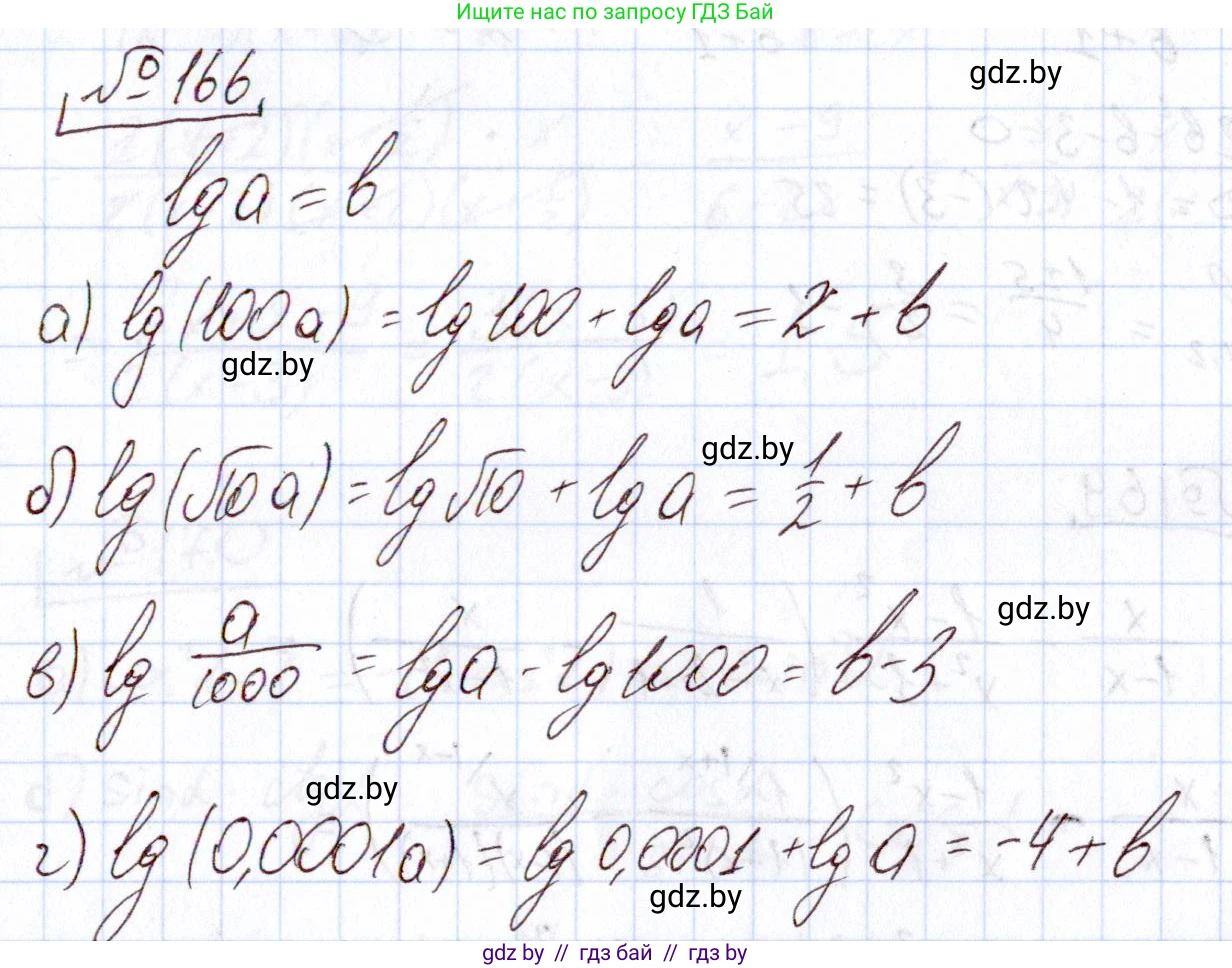 Ищите нас по запросу ГДЗ Бай
№ 166
gdz.by
lg a = b
а) lg (100 a) = lg 100 + lg a = 2 + b
gdz.by
gdz.by
б) lg (√10 a) = lg √10 + lg a = 1/2 + b
gdz.by
в) lg a/1000 = lg a - lg 1000 = b - 3
gdz.by
г) lg (0,0001 a) = lg 0,0001 + lg a = -4 + b
gdz.by
gdz by // гдз бай // гдз by